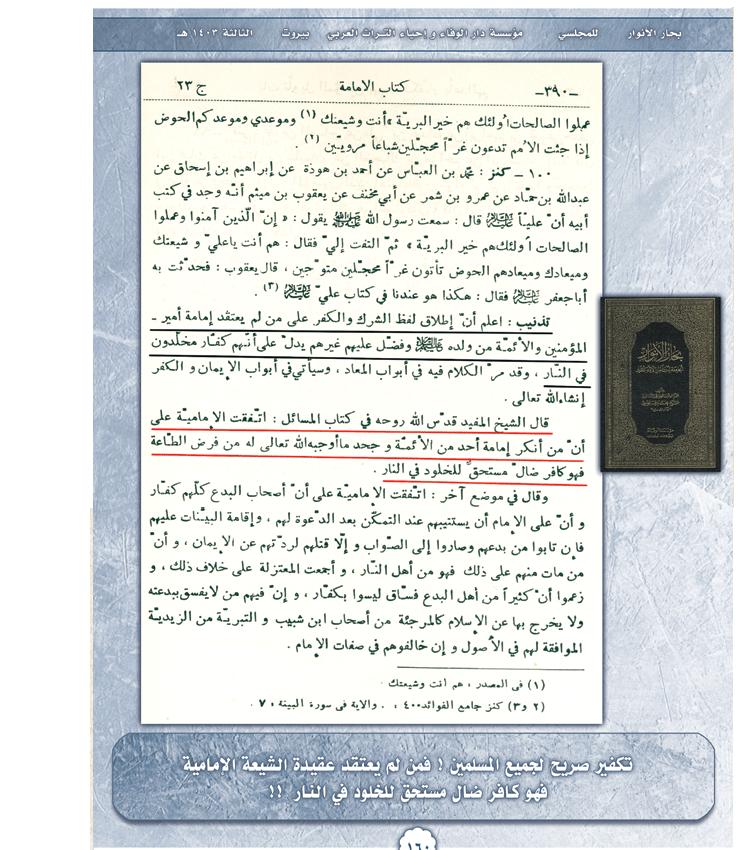 بحار الأنوار للمجلسي مؤسسة دار الوفاء و إحياء التراث العربي بيروت الثالثة ١٤٠٣ هـ
ج ٢٣ كتاب الامامة -٣٩٠-
عملوا الصالحات اُولئك هم خير البريّة » أنت وشيعتك (١) وموعدي وموعدكم الحوض
إذا جئت الاُمم تدعون غرّاً محجّلين شباعاً مرويّين (٢) .
١٠٠ ـ كنز : محمّد بن العبّاس عن أحمد بن هوذة عن إبراهيم بن إسحاق عن
عبدالله بن حمّاد عن عمرو بن شمر عن أبي مخنف عن يعقوب بن ميثم أنّه وجد في كتب
أبيه أنّ عليّاً عليه السلام قال : سمعت رسول الله يقول : « إنّ الّذين آمنوا وعملوا
الصالحات اُولئك هم خير البريّة » ثمّ التفت إليّ فقال : هم أنت ياعليّ و شيعتك
وميعادك وميعادهم الحوض تأتون غرّاً محجّلين متوّجين ، قال يعقوب : فحدّثت به
أباجعفر عليه السلام فقال : هكذا هو عندنا في كتاب عليّ عليه السلام (٣) .
تذنيب : اعلم أنّ إطلاق لفظ الشرك والكفر على من لم يعتقد إمامة أمير ـ
المؤمنين والأئمّة من ولده عليهم السلام وفضّل عليهم غيرهم يدلّ على أنّهم كفّار مخلّدون
في النّار ، وقد مرّ الكلام فيه في أبواب المعاد ، وسيأتي في أبواب الإيمان و الكفر
إنشاءالله تعالى .
قال الشيخ المفيد قدّس الله روحه في كتاب المسائل : اتّفقت الإماميّة على
أنّ من أنكر إمامة أحد من الأئمّة و جحد ماأوجبه الله تعالى له من فرض الطّاعة
فهو كافر ضالّ مستحقّ للخلود في النار .
وقال في موضع آخر : اتّفقت الإماميّة على أنّ أصحاب البدع كلّهم كفّار
و أنّ على الإمام أن يستتيبهم عند التمكّن بعد الدّعوة لهم ، وإقامة البيّنات عليهم
فإن تابوا من بدعهم وصاروا إلى الصّواب و إلّا قتلهم لردّتهم عن الإيمان ، و أنّ
من مات منهم على ذلك فهو من أهل النّار ، و أجمعت المعتزلة على خلاف ذلك ، و
زعموا أنّ كثيراً من أهل البدع فسّاق ليسوا بكفّار ، و إنّ فيهم من لا يفسق ببدعته
ولا يخرج بها عن الإسلام كالمرجئة من أصحاب ابن شبيب و التبريّة من الزيديّة
الموافقة لهم في الاُصول و إن خالفوهم في صفات الإمام .
(١) في المصدر : هم أنت وشيعتك .
(٢ و ٣) كنز جامع الفوائد ٤٠٠ . والاية في سورة البينة : ٧ .
بحار الأنوار
تكفير صريح لجميع المسلمين ! فمن لم يعتقد عقيدة الشيعة الامامية
فهو كافر ضال مستحق للخلود في النار !!
١٦٠